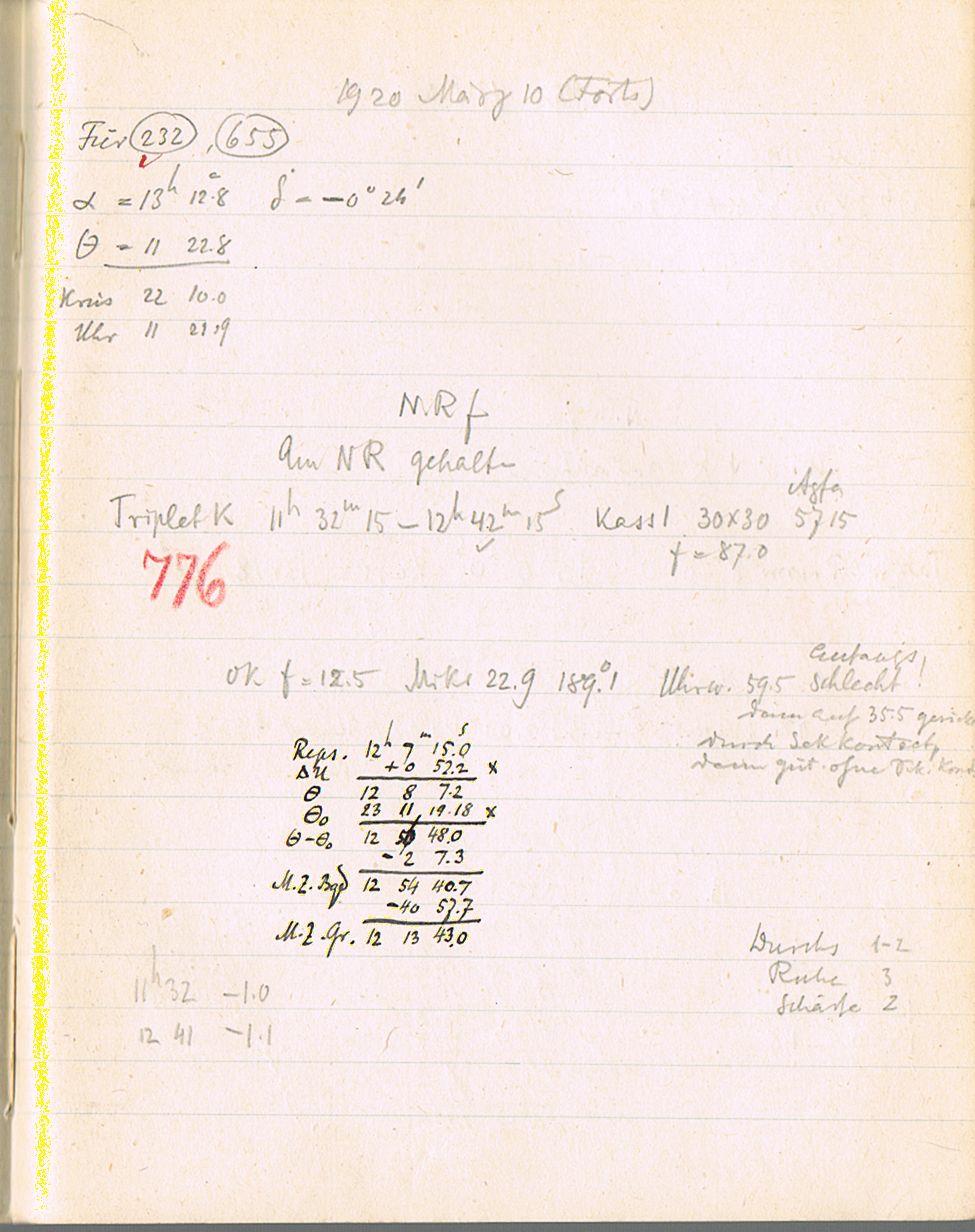 1920 März 10 (Forts)
Für 232, 655
α = 13h 12.8 δ = -0° 26'
θ = 11 22.8
Kreis 22 10.0
Uhr 11 21.9
NR f
Am NR gehalten
Agfa
Triplet K 11h 32m 15 - 12h 42m 15s Kass 1 30x30 5715
f = 87.0
776
Anfangs
OK f = 12.5 Mikr 22.9 189°.1 Uhrw. 59.5 schlecht!
dann auf 35.5
durch Sek Kontact,
dann gut. ohne Sek. Kont
Reps. 12h 7m 15.0s
ΔU +0 52.2 x
θ 12 8 7.2
θ₀ 23 11 19.18 x
θ-θ₀ 12 56 48.0
-2 7.3
M.Z. Bgd 12 54 40.7
-40 57.7
M.Z. Gr. 12 13 43.0
Durchs 1-2
Ruhe 3
Schärfe 2
11h 32 -1.0
12 41 -1.1